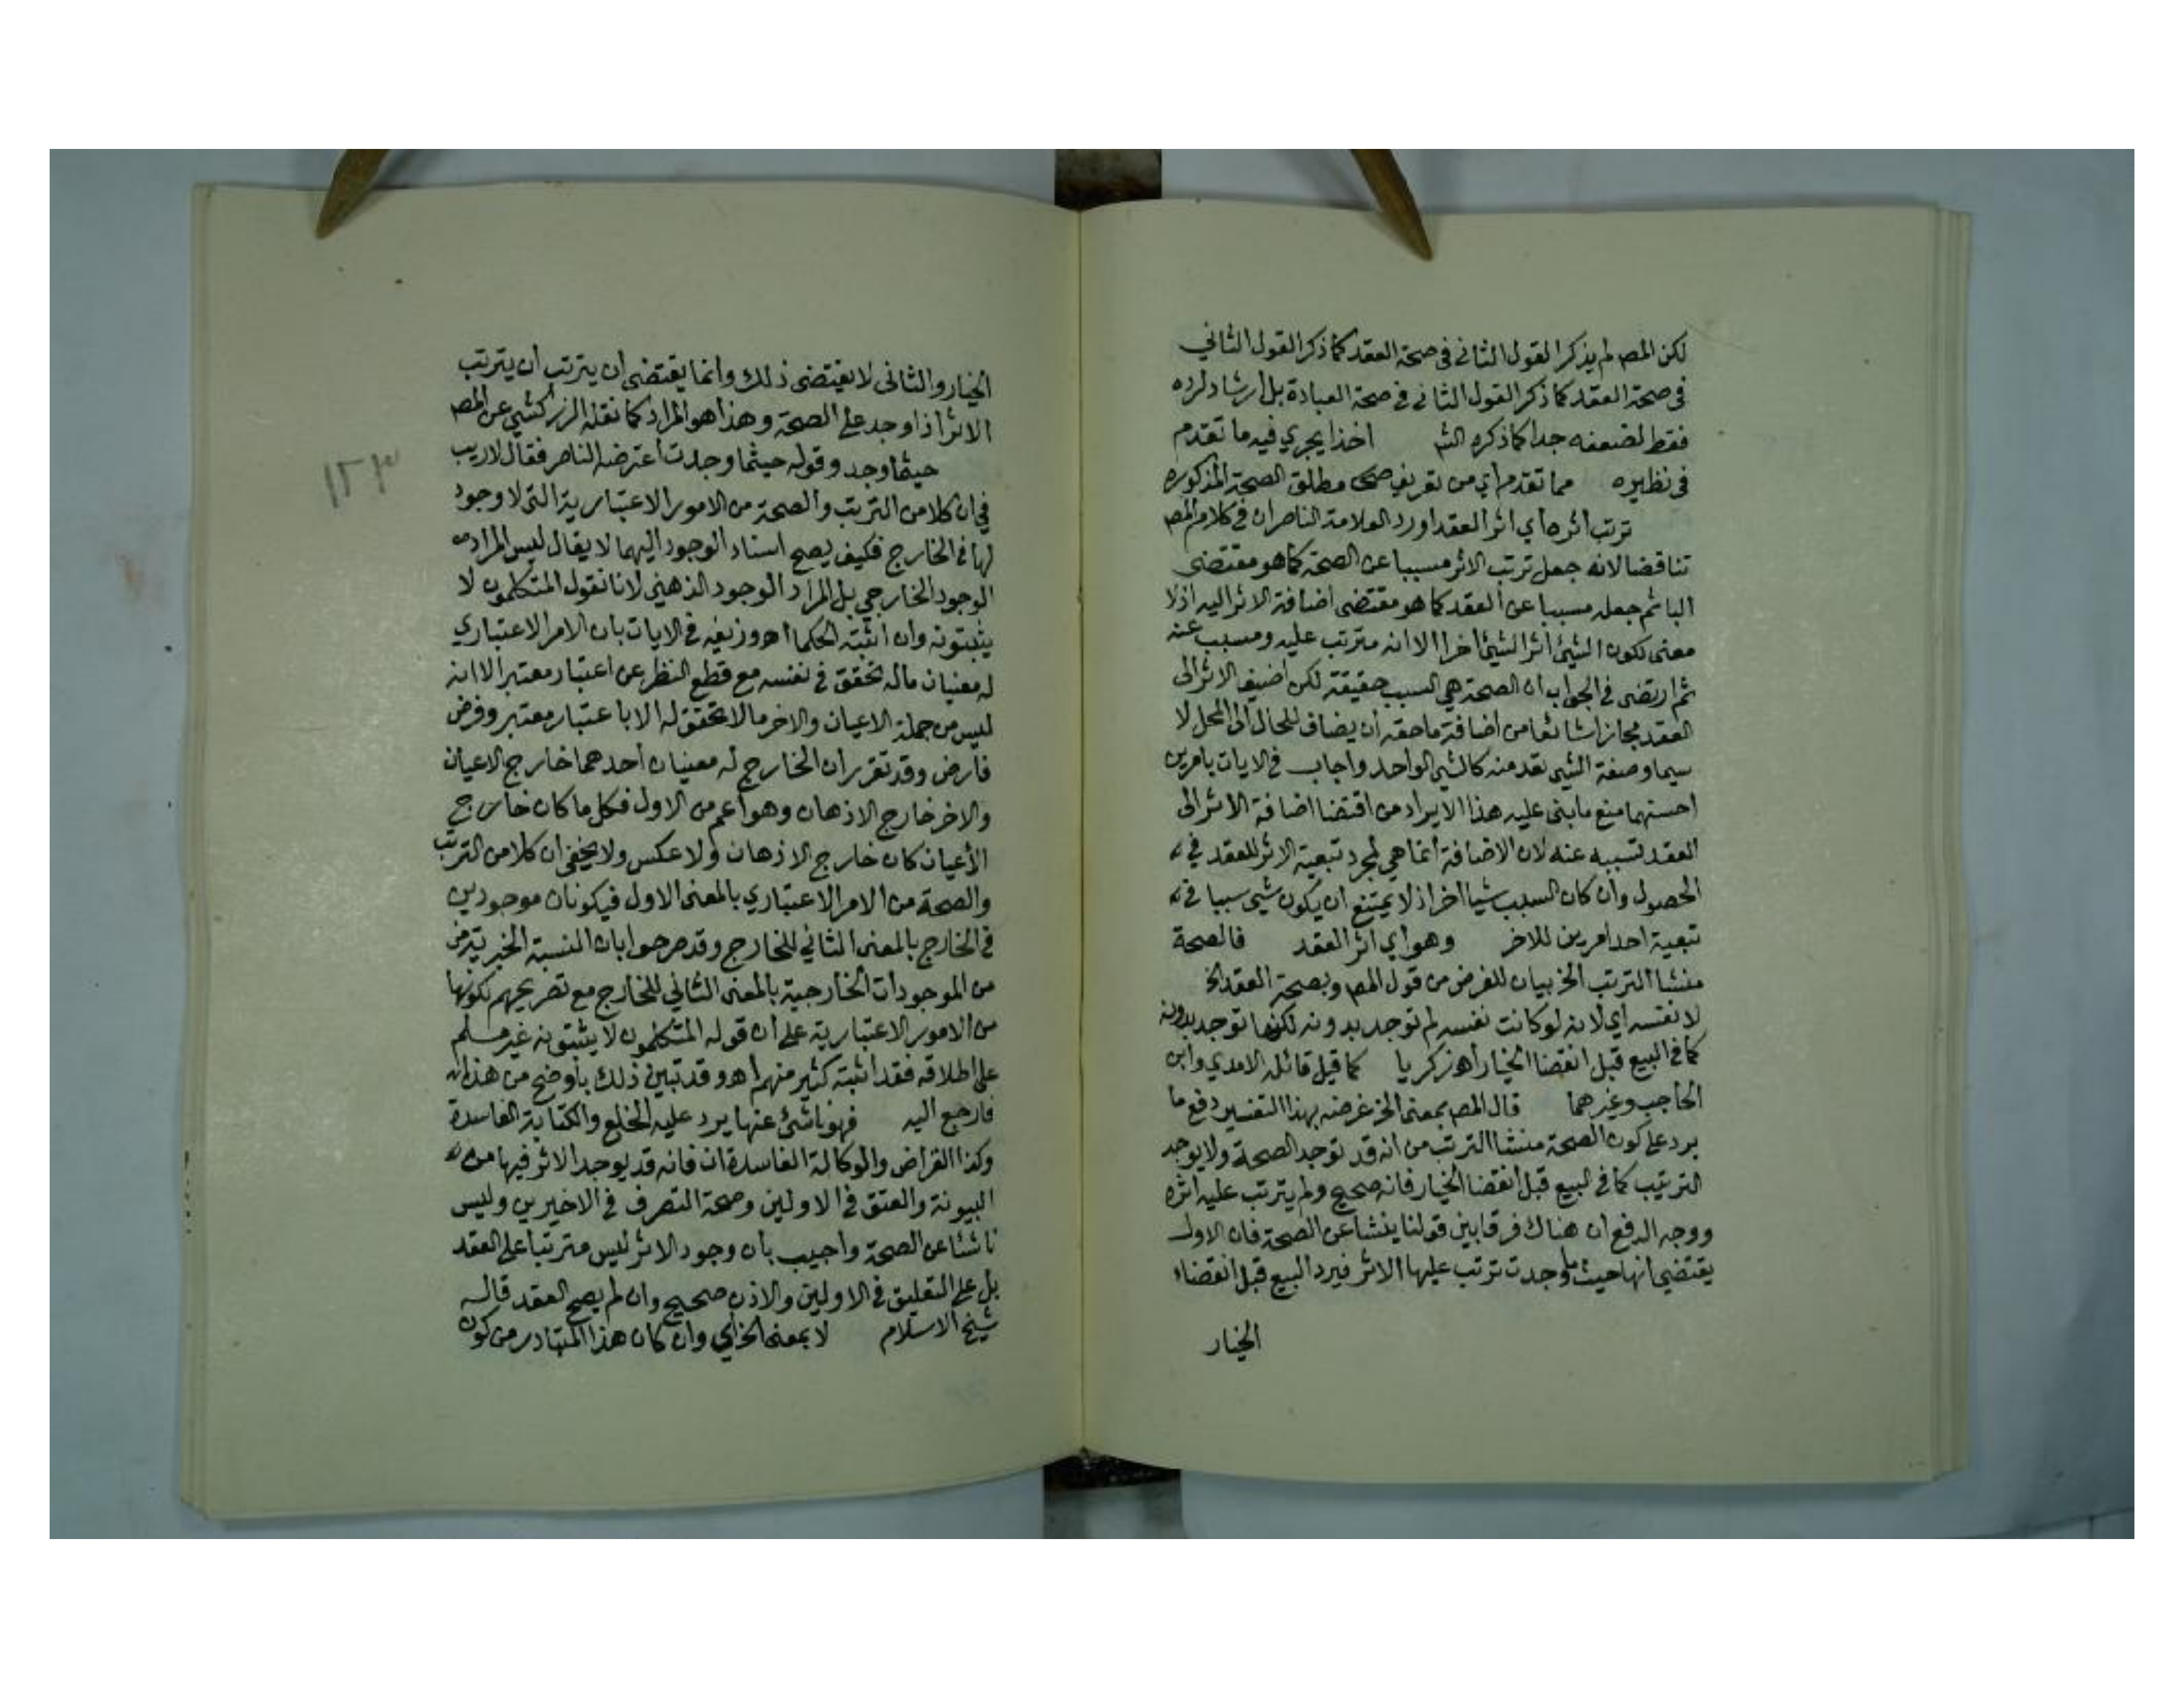 لكن المص لم يذكر القول الثاني في صحة العقد كما ذكر القول الثاني
في صحة العقد كما ذكر القول الثاني في صحة العبادة بل ارشاد لرده
فقط لضعفه جدا كما ذكره الش اخذا يجري فيه ما تقدم
في نظيره مما تقدم اي من تعريف مطلق الصحة المذكوره
ترتب اثره اي اثر العقد اورد العلامة الناصر ان في كلام المص
تناقضا لانه جعل ترتب الاثر مسببا عن الصحة كما هو مقتضى
البا ثم جعله مسببا عن العقد كما هو مقتضى اضافة الاثر اليه اذ لا
معنى لكون الشيئ اثر الشيئ اخر الا انه مترتب عليه ومسبب عنه
ثم ارتضى في الجواب ان الصحة هي السبب حقيقة لكن اضيف الاثر الى
العقد مجازا شائعا من اضافة ما حقه ان يضاف للحال الى المحل لا
سيما وصفة الشيى تعد منه كالشي الواحد واجاب في الايات بامرين
احسنهما منع ما بنى عليه هذا الايراد من اقتضا اضافة الاثر الى
العقد تسببه عنه لان الاضافة انما هي لمجرد تبعية الاثر للعقد في
الحصول وان كان السبب شيا اخر اذ لا يمتنع ان يكون شيى سببا في
تبعية احد امرين للاخر وهو اي اثر العقد فالصحة
منشا الترتب الخ بيان للغرض من قول المص وبصحة العقد الخ
لا نفسه اي لانه لو كانت نفسه لم توجد بدونه لكنها توجد بدونه
كما في البيع قبل انقضا الخيار اهـ زكريا كما قيل قائله الامدي وابن
الحاجب وغيرهما قال المص بمعنى الخ غرضه بهذا التفسير دفع ما
يرد على كون الصحة منشا الترتب من انه قد توجد الصحة ولا يوجد
الترتيب كما في البيع قبل انقضا الخيار فانه صحيح ولم يترتب عليه اثره
ووجه الدفع ان هناك فرقا بين قولنا ينشا عن الصحة فان الاول
يقتضي انها حيثما وجدت ترتب عليها الاثر فيرد البيع قبل انقضاء
الخيار
الخيار والثاني لا يقتضى ذلك وانما يقتضى ان يترتب ان يترتب
الاثر اذا وجد على الصحة وهذا هو المراد كما نقله الزركشي عن المص
حيثما وجد وقوله حيثما وجدت اعترضه الناصر فقال لا ريب
في ان كلا من الترتب والصحة من الامور الاعتبارية التي لا وجود
لها في الخارج فكيف يصح اسناد الوجود اليهما لا يقال ليس المراد
الوجود الخارجي بل المراد الوجود الذهني لانا نقول المتكلمون لا
يثبتونه وان اثبته الحكما اهـ وزيفه في الايات بان الامر الاعتباري
له معنيان ماله تحقق في نفسه مع قطع النظر عن اعتبار معتبر الا انه
ليس من جملة الاعيان والاخر ما لا تحقق له الا باعتبار معتبر وفرض
فارض وقد تقرر ان الخارج له معنيان احدهما خارج الاعيان
والاخر خارج الاذهان وهو اعم من الاول فكل ما كان خارج
الأعيان كان خارج الاذهان ولا عكس ولا يخفى ان كلا من الترتب
والصحة من الامر الاعتباري بالمعنى الاول فيكونان موجودين
في الخارج بالمعنى الثاني للخارج وقد صرحوا بان النسبة الخبرية من
من الموجودات الخارجية بالمعنى الثاني للخارج مع تصريحهم بكونها
من الامور الاعتبارية على ان قوله المتكلمون لا يثبتونه غير مسلم
على اطلاقه فقد اثبته كثير منهم اهـ وقد تبين ذلك باوضح من هذا
فارجع اليه فهو ناشئ عنها يرد عليه الخلع والكتابة الفاسدة
وكذا القراض والوكالة الفاسدة ان فانه قد يوجد الاثر فيها من
البيونة والعتق في الاولين وصحة التصرف في الاخيرين وليس
ناشئا عن الصحة واجيب بان وجود الاثر ليس مترتبا على العقد
بل على التعليق في الاولين والاذن صحيح وان لم يصح العقد قاله
شيخ الاسلام لا بمعنى الخ اي وان كان هذا المتبادر من كون
١٢٣